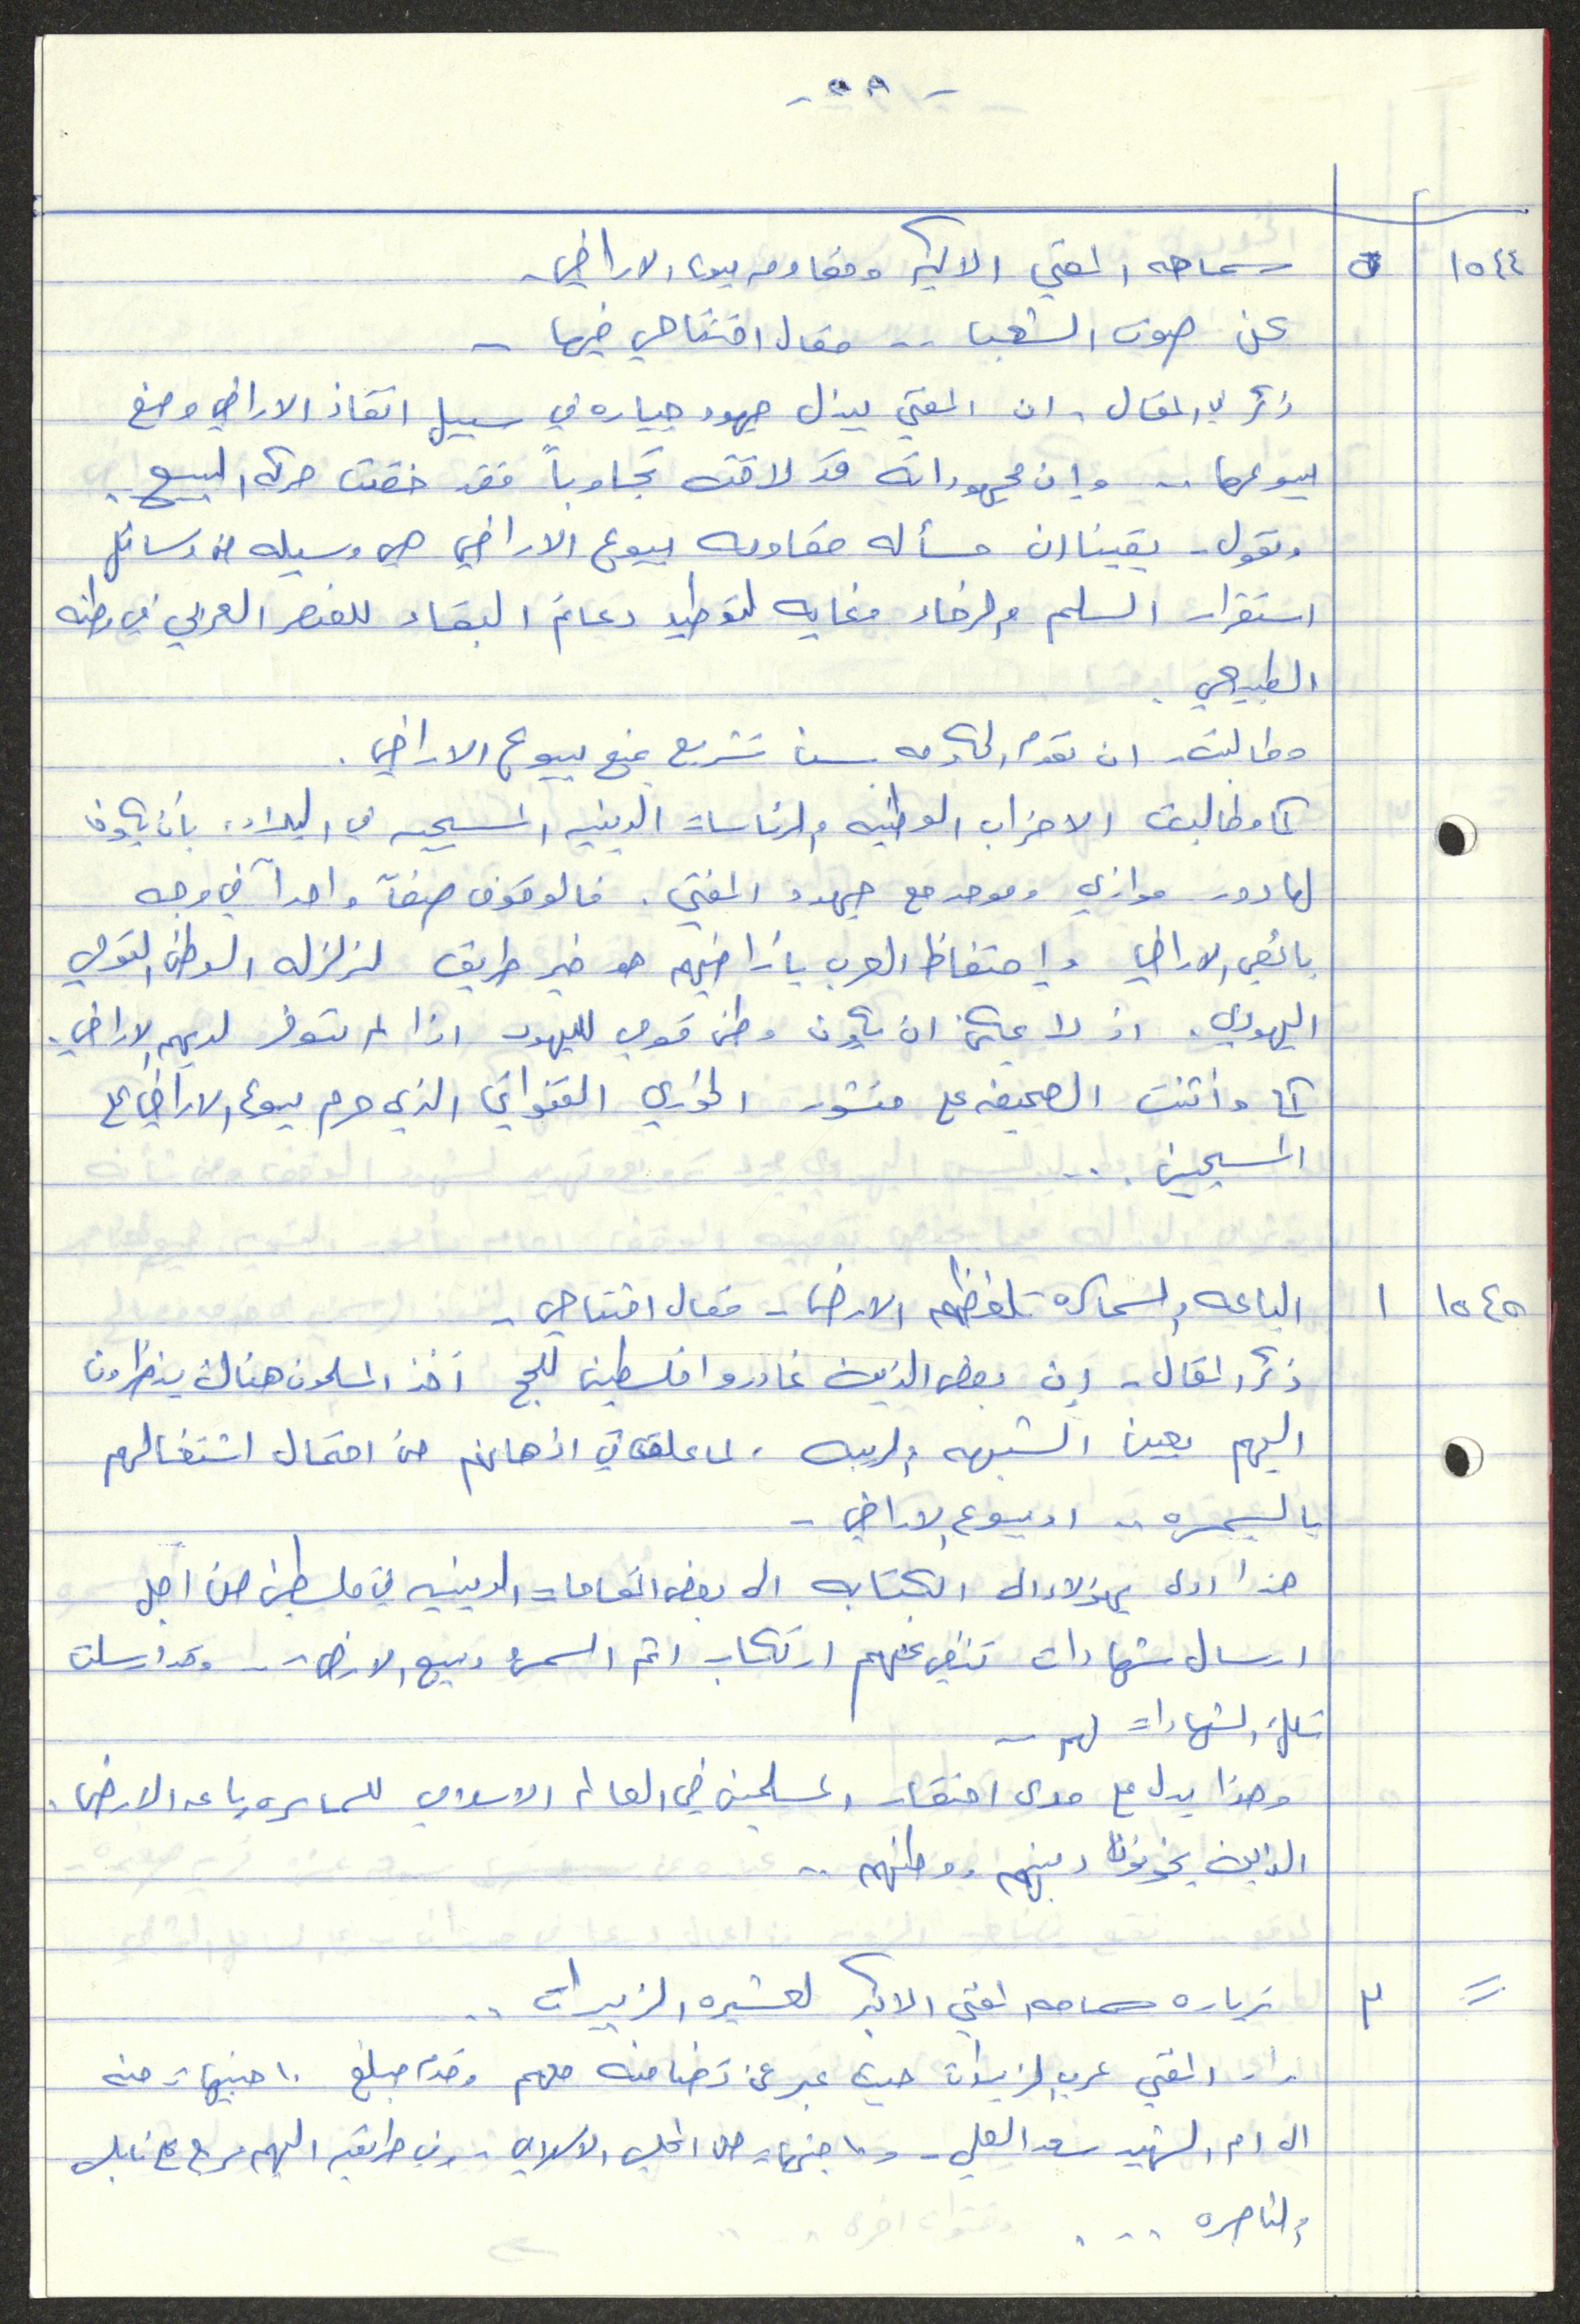 - ٥٩ -
١٥٤٤ ٥ سماحه المفتي الاكبر ومقاومه بيوع الاراضي -
عن صوت الشعب -- مقال افتتاحي فيها -
ذكر في المقال، ان المفتي يبذل جهود جباره في سبيل انقاذ الاراضي ومنع
بيوعها -- وان مجهوداته قد لاقت تجاوباً فقد خفت حركه البيع -
وتقول - يقينا ان مسأله مقاومه بيوع الاراضي هي وسيله من وسائل
استقرار السلم والرخاء وغايه لتوطيد دعائم البقاء للعنصر العربي في وطنه
الطبيعي .
وطالبت ان تقوم الحكومه بسن تشريع يمنع بيوع الاراضي .
كما وطالبت الاحزاب الوطنيه والرئاسات الدينيه المسيحيه في البلاد، بأن يكون
لها دور موازي وموحد مع جهود المفتي . فالوقوف صفاً واحداً في وجه
بائعي الاراضي واحتفاظ العرب بأراضيهم هو خير طريق لزلزله الوطن القومي
اليهودي. اذ لا يمكن ان يكون وطن قومي لليهود اذا لم تتوفر لديهم الاراضي .
كما واثنت الصحيفه على منشور الخوري القنواتي الذي حرم بيوع الاراضي على
المسيحيين . ..
١٥٤٥ ١ الباعه والسماسره تلفظهم الارض - مقال افتتاحي -
ذكر المقال - ان بعض الذين غادروا فلسطين للحج أخذ المسلمون هناك ينظرون
اليهم بعين الشبهه والريبه ، لما علق في اذهانهم من احتمال اشتغالهم
بالسمسره .. او بيوع الاراضي -
هذا ادى بهؤلاء الى الكتابه الى بعض المقامات الدينيه في فلسطين من اجل
ارسال شهادات تنفي عنهم ارتكاب اثم السمسرة وبيع الارض -- وقد ارسلت
تلك الشهادات لهم --
وهذا يدل على مدى احتقار المسلمين في العالم الاسلامي للسماسره وباعه الارض .
الذين يخونون دينهم ووطنهم ..
= ٣ زياره سماحه المفتي الاكبر لعشيره الزبيدات ..
زار المفتي عرب الزبيدات حيث عبر عن تضامنه معهم وقدم مبلغ ١٠ جنيهات منه
الى ام الشهيد سعد العلي - و ١٠ جنيهات من المجلس الاسلامي - وفي طريقه اليهم عرج على نابلس
والناصره . .. .